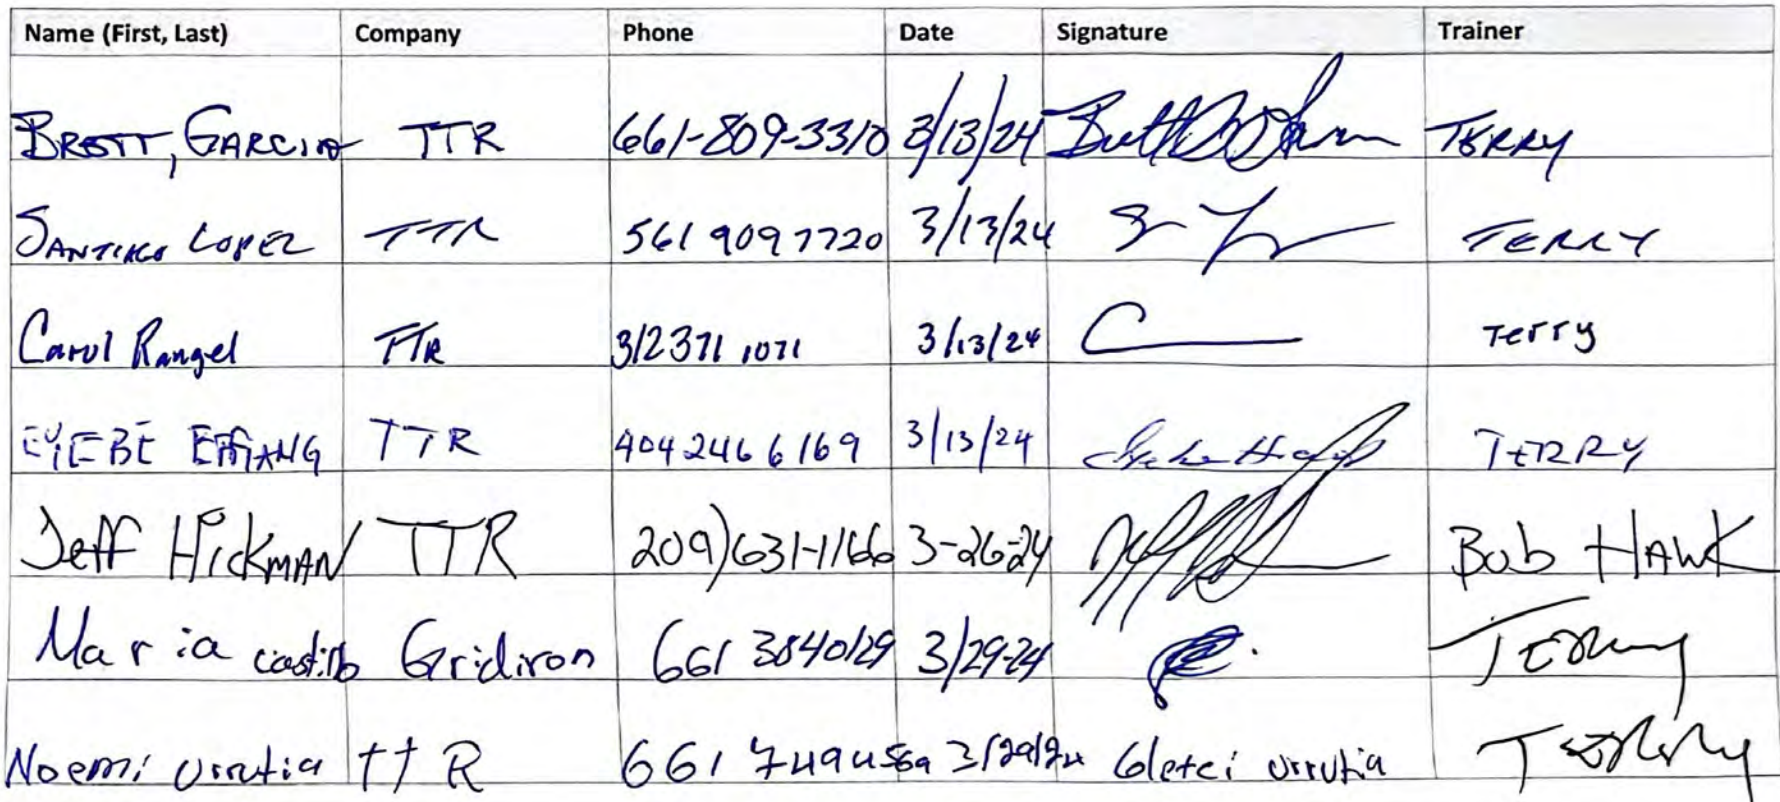 Name (First, Last) Company Phone Date Signature Trainer
BRETT, GARCIA TTR 661-809-3310 3/13/24 TERRY
SANTIAGO LOPEZ TTR 561 909 7720 3/13/24 TERRY
Carol Rangel TTR 312 371 1071 3/13/24 Terry
EYEBE EFFANG TTR 404 246 6169 3/13/24 TERRY
Jeff HickMAN TTR 209)631-1166 3-26-24 Bob HAWK
Maria castillo Gridiron 661 3040129 3/29-24 TERRY
Noemi Urrutia ttR 661 3/29/24 urrutia TERRY